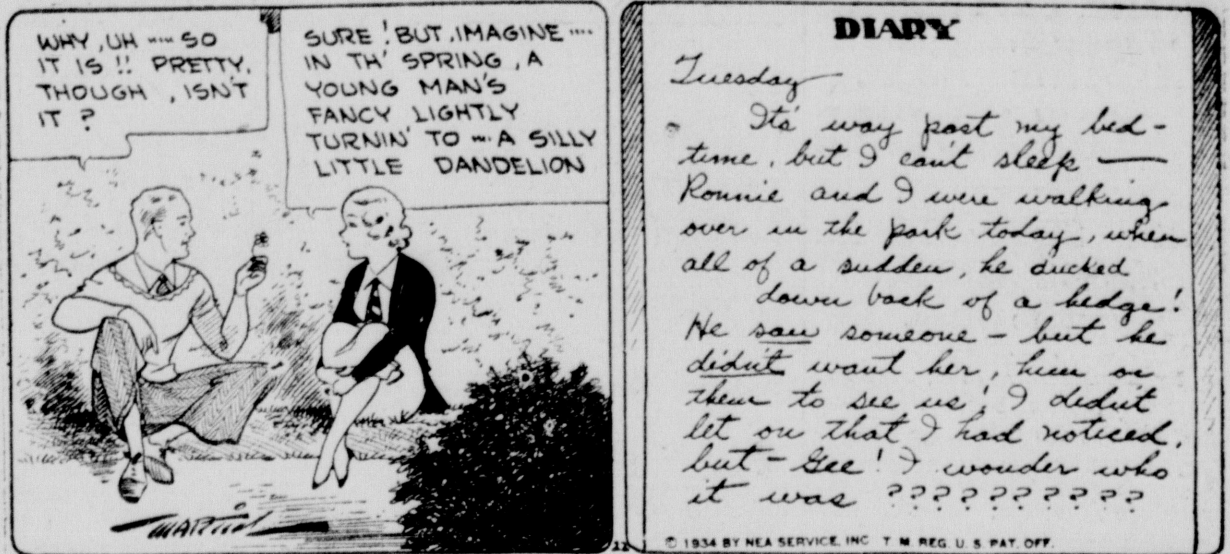 WHY, UH .... SO
IT IS !! PRETTY,
THOUGH , ISN'T
IT ?
SURE ! BUT, IMAGINE ....
IN TH' SPRING , A
YOUNG MAN'S
FANCY LIGHTLY
TURNIN' TO ... A SILLY
LITTLE DANDELION
MARTIN
11
DIARY
Tuesday
Its way past my bed-
time, but I can't sleep —
Ronnie and I were walking
over in the park today, when
all of a sudden, he ducked
down back of a hedge!
He saw someone - but he
didn't want her, him or
them to see us! I didn't
let on that I had noticed,
but - Gee! I wonder who
it was ??????????
© 1934 BY NEA SERVICE, INC T. M. REG. U. S. PAT. OFF.